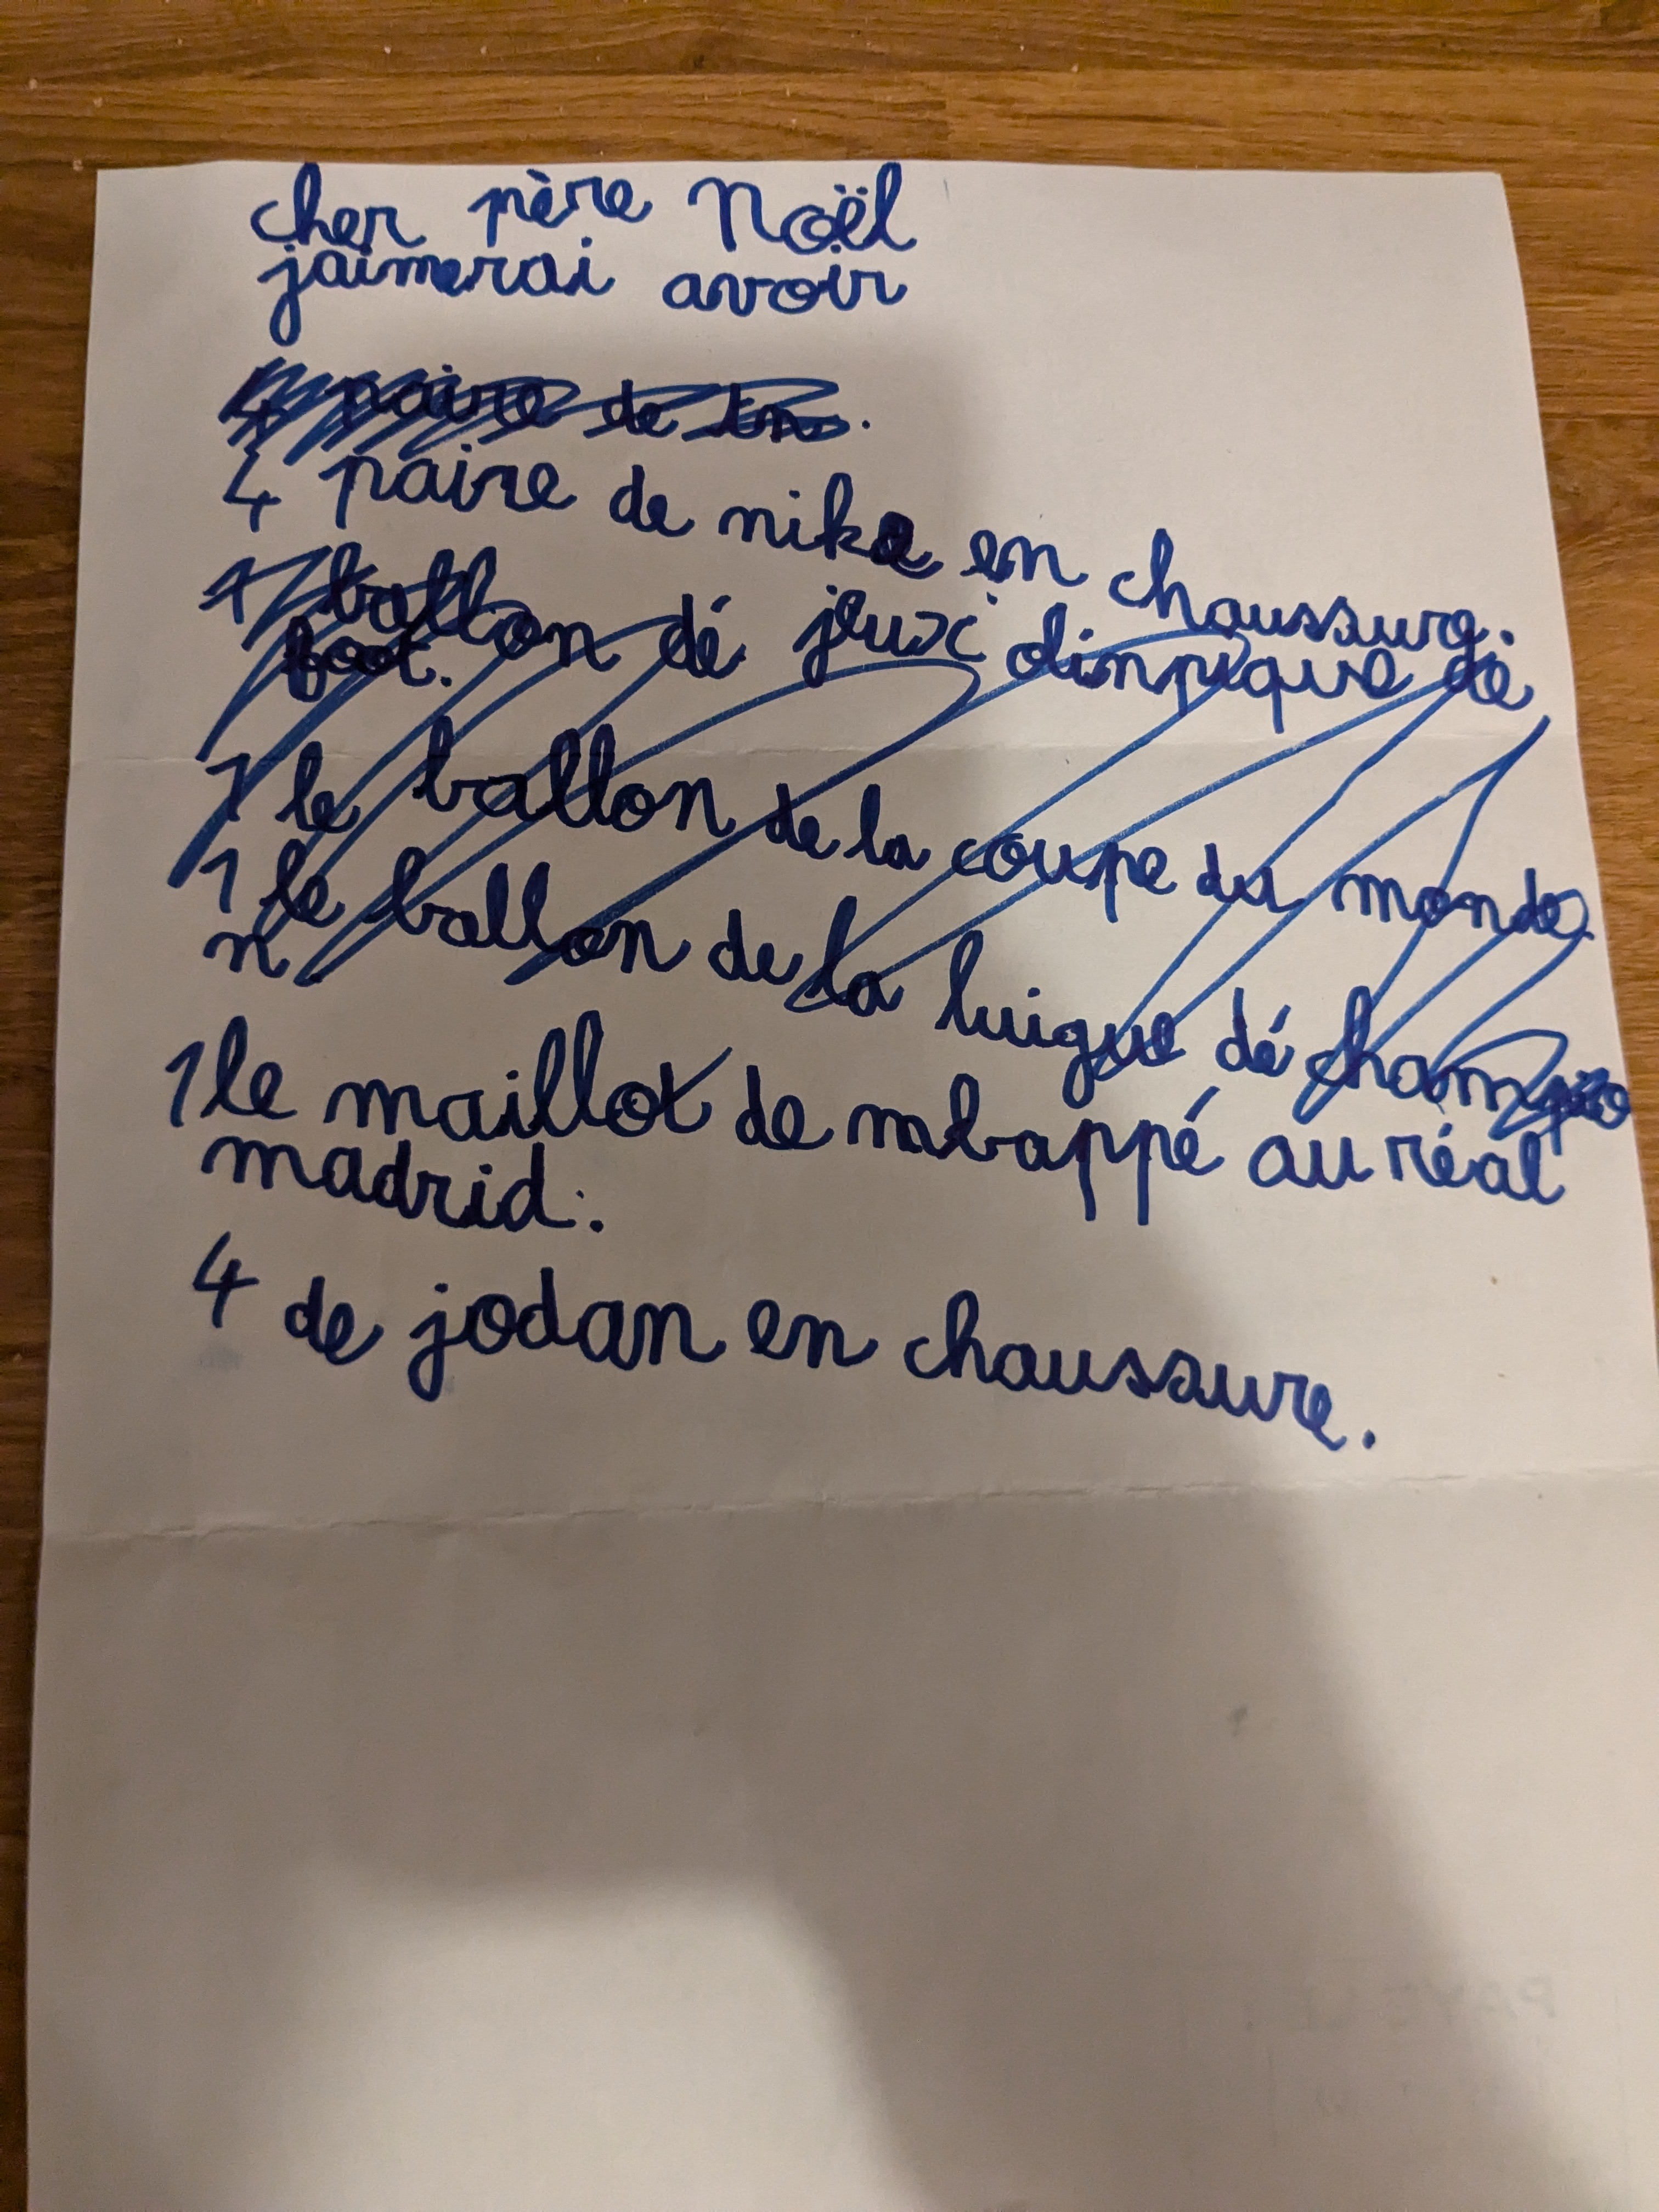 cher père Noël
jaimerai avoir
4 paire de tn.
4 paire de nike en chaussure.
1 ballon dé jeux olimpique de
foot.
1 le ballon de la coupe du monde
1 le ballon de la luigue dé champio
n
1 le maillot de mbappé au réal
madrid.
4 de jodan en chaussure.